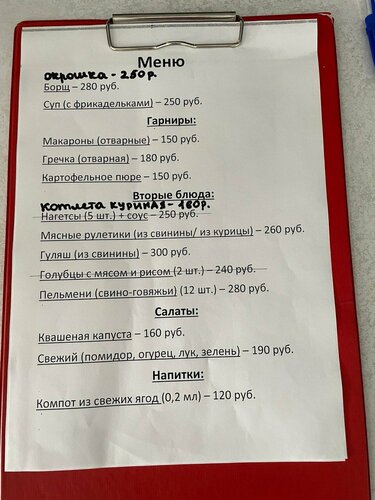 Меню
окрошка - 250 р.
Борщ – 280 руб.
Суп (с фрикадельками) – 250 руб.
Гарниры:
Макароны (отварные) – 150 руб.
Гречка (отварная) – 180 руб.
Картофельное пюре – 150 руб.
Вторые блюда:
котлета куриная - 180р.
Нагетсы (5 шт.) + соус – 250 руб.
Мясные рулетики (из свинины/ из курицы) – 260 руб.
Гуляш (из свинины) – 300 руб.
Голубцы с мясом и рисом (2 шт.) – 240 руб.
Пельмени (свино-говяжьи) (12 шт.) – 280 руб.
Салаты:
Квашеная капуста – 160 руб.
Свежий (помидор, огурец, лук, зелень) – 190 руб.
Напитки:
Компот из свежих ягод (0,2 мл) – 120 руб.